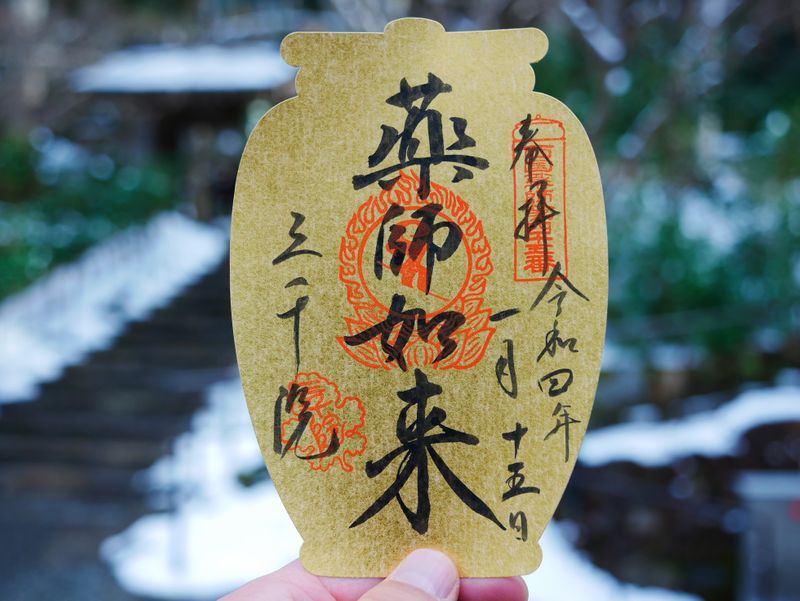 奉拝
令和四年
一月十五日
薬師如来
三千院